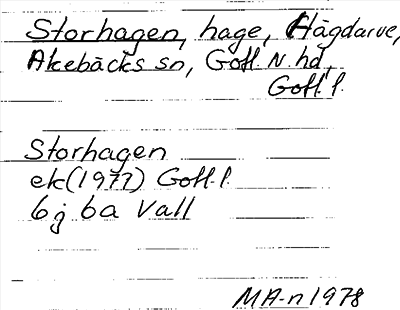 Storhagen, hage, Hägdarve,
Akebäcks sn, Gotl. N. hd,
Gotl. l.
Storhagen
ek (1977) Gotl. l.
6 j 6a Vall
MA-n 1978